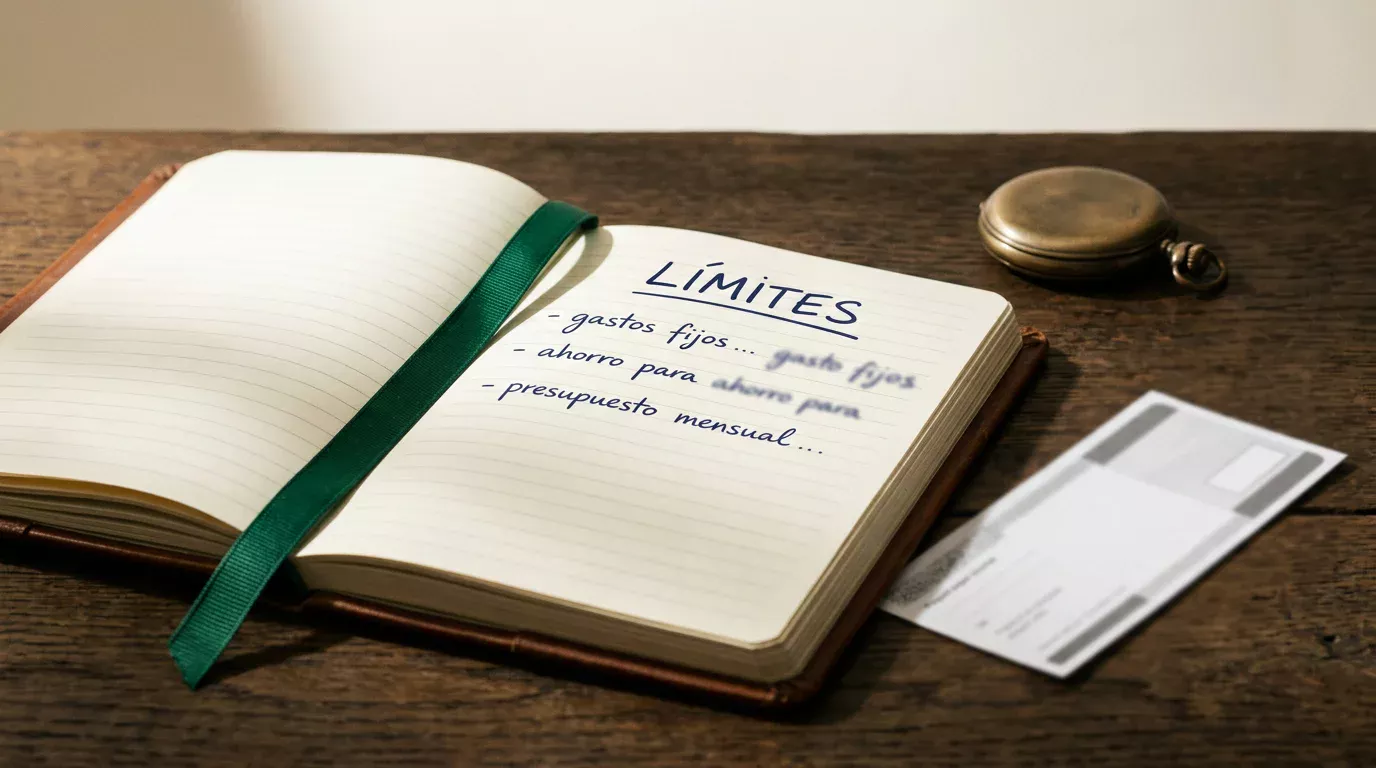 LÍMITES
- gastos fijos... gasto fijos
- ahorro para ahorro para
- presupuesto mensual...